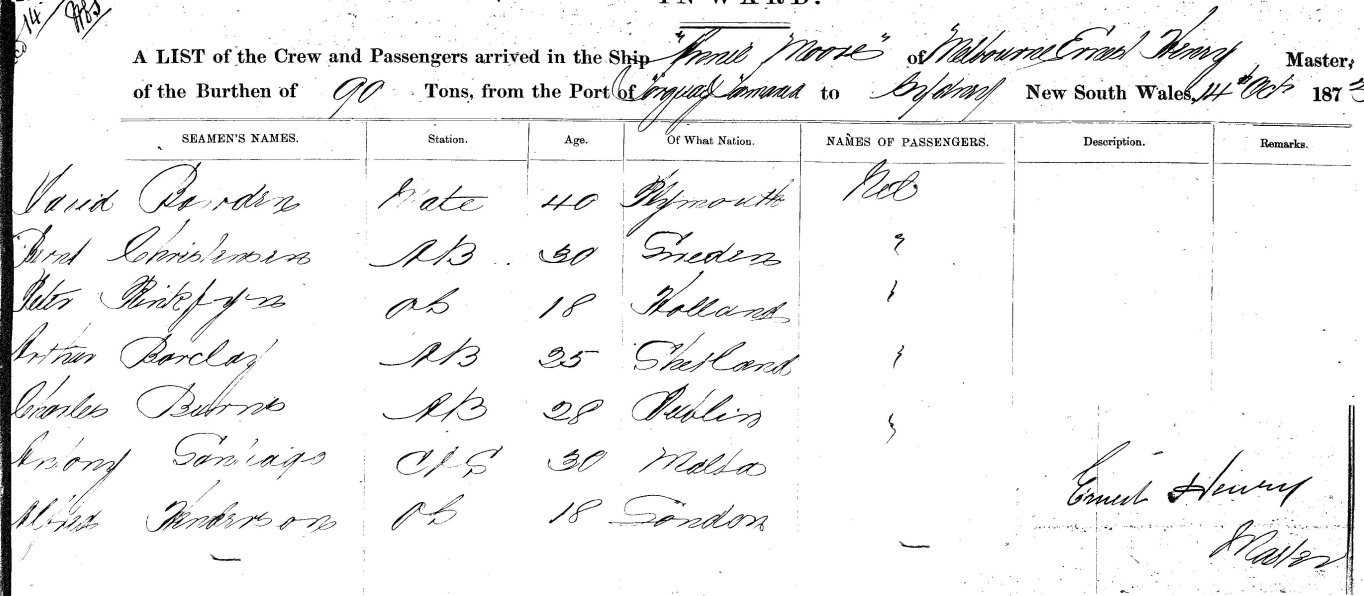 14/
INWARD.
A LIST of the Crew and Passengers arrived in the Ship "Annie Moose" of Melbourne Ernest Henry Master,
of the Burthen of 90 Tons, from the Port of to Sydney New South Wales, 14th Oct 1873
SEAMEN'S NAMES. Station. Age. Of What Nation. NAMES OF PASSENGERS. Description. Remarks.
David Bowden Mate 40 Plymouth Nil
Bernt Christensen AB 30 Sweden "
Peter OS 18 Holland "
Arthur Barclay AB 25 Shetland "
Charles Burns AB 28 Dublin "
Antony Santiago C & S 30 Malta
Alfred Henderson OS 18 London
Ernest Henry
Master